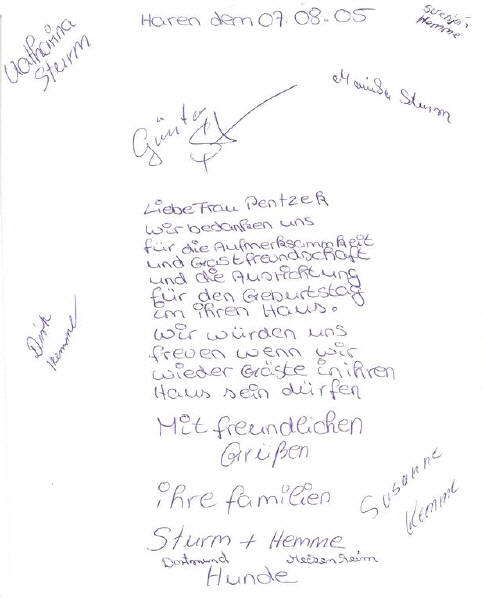 Haren dem 07.08-05
Hemme
Katharina
Sturm
Sturm
Günter
Liebe Frau Pentzek
wir bedanken uns
für die Aufmerksammkeit
und Gastfreundschaft
und die Ausrichtung
für den Geburtstag
im ihren Haus.
wir würden uns
freuen wenn wir
wieder Gäste in ihren
Haus sein dürfen
Mit freundlichen
Grüßen
ihre familien
Sturm + Hemme
Dortmund
Hunde
Dirk
Hemme
Susanne
Hemme